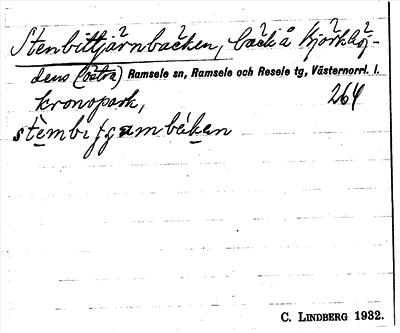 Stenbittjärnbäcken, bäck i å Björkhöj-
dens (östra) Ramsele sn, Ramsele och Resele tg, Västernorrl. l.
kronopark, 264
C. LINDBERG 1932.